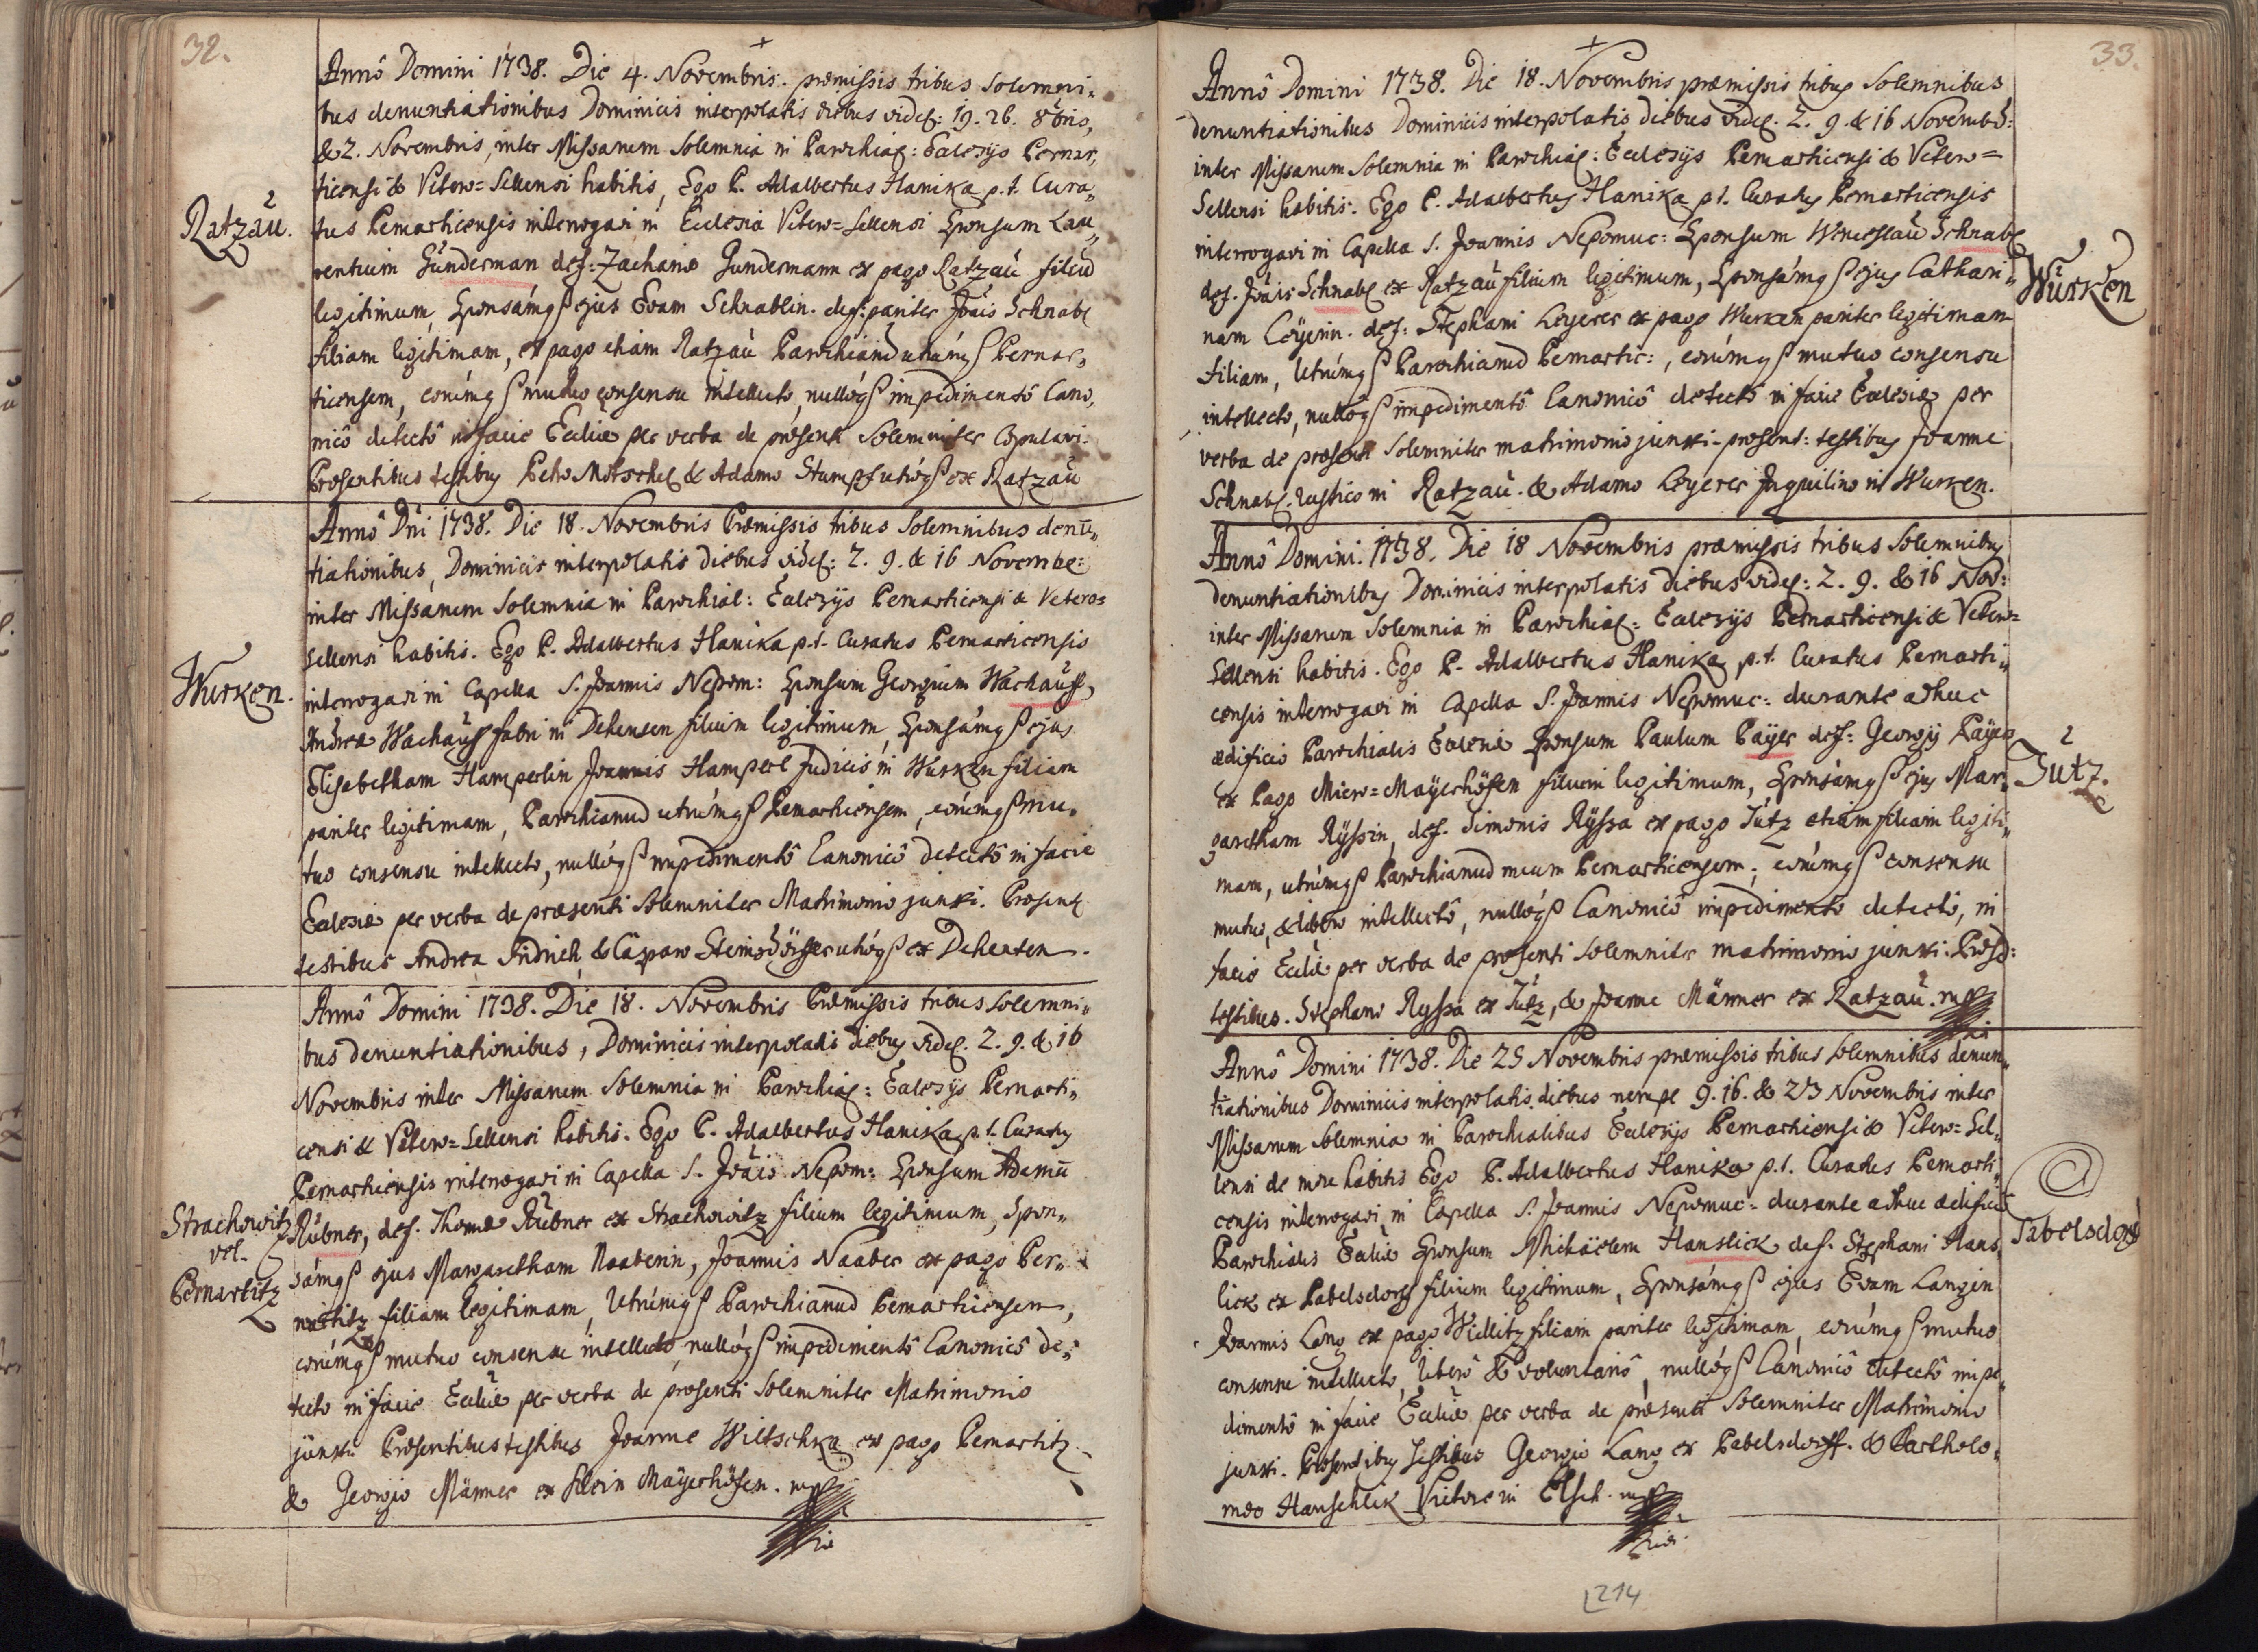 32.
Annô Domini 1738. Die 4. Novembris. præmissis tribus solemni„
bus denuntiationibus Dominicis interpolatis diebus videl: 19. 26. 8bris,
& 2. Novembris, inter Missarum solemnia in Parochial: Eccles̃ijs Pernar„
ticensi & Vetero=Sellensi habitis, Ego P. Adalbertus Hanika p.t. Cura„
Ratzaŭ.
tus Pernarticensis interrogavi in Ecclesia Vetero=Sellensi Sponsum Lau„
rentium Gŭnderman def: Zachariæ Gundermann ex pago Ratzaŭ filiũ
legitimum, Sponsámq̃ ejus Evam Schnablin. def: pariter Jõais Schnabl
filiam legitimam, ex pago etiam Ratzaŭ Parochianũ utrúmq̃ Pernar„
ticensem, eorúmq̃ mutuo consensu intellecto, nullóq̃ impedimentô Cano„
nicô detectô in facie Eccliæ per verba de præsenti solemniter copulavi.
Præsentibus testibus Petro Motschel & Adamo Stumpf utróq̃ ex Ratzaŭ
Annô Dñi 1738. Die 18. Novembris Præmissis tribus solemnibus denũ„
tiationibus, Dominicis interpolatis diebus videl: 2. 9. & 16 Novembr:
inter Missarum solemnia in Parochial: Ecclesijs Pernarticensi & Vetero=
Sellensi habitis. Ego P. Adalbertus Hanika p.t. Curatus Pernarticensis
Wurken.
interrogavi in Capella S. Joannis Nepom: Sponsum Georgium Wachaŭss,
Andreæ Wachaŭss fabri in Dehensen filium legitimum, Sponsámq̃ ejus
Elisabetham Hamperlin Joannis Hamperl Judicis in Wurken filiam
pariter legitimam, Parochianũ utrúmq̃ Pernarticensem, eorúmq̃ mu„
tuo consensu intellecto, nullóq̃ impedimentô Canonicô detectô in facie
Eclesiæ per verba de præsenti solemniter Matrimonio junxi. Præsent
testibus Andrea Fridrich & Casparo utróq̃ ex Dehenten.
Annô Domini 1738. Die 18. Novembris Præmissis tribus solemni„
bus denuntiationibus, Dominicis interpolatis diebus videl. 2. 9. & 16
Novembris inter Missarum solemnia in Parochial: Eclesijs Pernarti„
censi & Vetero=Sellensi habitis. Ego P. Adalbertus Hanika p.t. Curatus
Pernarticensis interrogavi in Capella S. Jõais Nepom: Sponsum Adamũ
Strachowitz
vel.
Pernartitz
Rŭbner, def. Thomæ Rŭbner ex Strachowitz filium legitimum, Spon„
sámq̃ ejus Margaretham Naaberin, Joannis Naaber ex pago Per„
nartitz filiam legitimam, Utrúmq̃ Parochianũ Pernarticensem,
eorúmq̃ mutuo consensu intellecto, nullóq̃ impedimentô Canonicô de„
tecto in facie Eccliæ per verba de præsenti solemniter Matrimonio
junxi. Præsentibus testibus Joanne Wiltschka ex pago Pernartitz
& Georgio Männer ex Klein Mayerhöfen. mpp
33.
Annô Domini 1738. Die 18. Novembris præmissis tribus solemnibus
denuntiationibus Dominicis interpolatis diebus videl. 2. 9. & 16 Novemb:
inter Missarum solemnia in Parochial: Ecclesijs Pernarticensi & Vetero=
Sellensi habitis. Ego P. Adalbertus Hanika p.t. Curatus Pernarticensis
interrogavi in Capella S. Joannis Nepomuc: Sponsum Wenceslaŭ Schnabl
Wŭrken
def. Jõais Schnabl ex Ratzaŭ filium legitimum, Sponsámq̃ ejus Cathari„
nam Löyerin. def: Stephani Löyerer ex pago Wurken pariter legitimam
filiam, Utrúmq̃ Parochianũ Pernartic:, eorúmq̃ mutuo consensu
intellecto, nullôq̃ impedimentô Canonicô detectô in facie Eclesiæ per
verba de præsenti solemniter matrimonio junxi. præsent: testibus Joanne
Schnabl. rustico in Ratzaŭ. & Adamo Löyerer Inquilino in Wurken.
Annô Domini. 1738. Die 18 Novembris præmissis tribus solemnibus
denuntiationibus Dominicis interpolatis diebus videl: 2. 9. & 16 Nov:
inter Missarum solemnia in Parochial: Eclesijs Pernarticensi & Vetero=
Sellensi habitis. Ego P. Adalbertus Hanika p.t. Curatus Pernarti„
censis interrogavi in Capella S. Joannis Nepomuc: durante adhuc
ædificio Parochialis Eclesiæ Sponsum Paulum Päyer def: Georgij Päyer
Jutz.
ex Pago Mayerhöfen filium legitimum, Sponsámq̃ ejus Mar„
garetham Ryssin, def. Simonis Ryssa ex pago Jŭtz etiam filiam legiti„
mam, utrúmq̃ Parochianũ meum Pernarticensem, eorúmq̃ consensu
mutuo, & libero intellectô, nullóq̃ Canonicô impedimento detectô, in
facie Eccliæ per verba de præsenti solemniter matrimonio junxi. Præsd:
testibus. Stephano Ryssa ex Jŭtz, & Joanne Männer ex Ratzaŭ. mpp
Annô Domini 1738. Die 25 Novembris præmissis tribus solemnibus denun„
tiationibus Dominicis interpolatis diebus nempe 9. 16. & 23 Novembris inter
Missarum solemnia in Parochialibus Eclesijs Pernarticensi & Vetero=Sel„
lensi de more habitis Ego P. Adalbertus Hanika p.t. Curatus Pernarti„
censis interrogavi in Capella S. Joannis Nepomuc: durante adhuc ædificio
Pabelsdorf
Parochialis Eccliæ Sponsum Michäelem Hanslick def. Stephani Hans„
lick ex Pabelsdorf filium legitimum, Sponsámq̃ ejus Evam Langin
Joannis Lang ex pago Widlitz filiam pariter legitimam, eorúmq̃ mutuo
consensu intellecto, liberô & voluntariô, nullóq̃ Canonicô detectô impe„
dimentô in facie Eccliæ per verba de præsenti solemniter Matrimonio
junxi. Præsentibus testibus Georgio Lang ex Pabelsdorff. & Bartholo„
mæo Hanschlik Vietore in Elsch. mpp
214